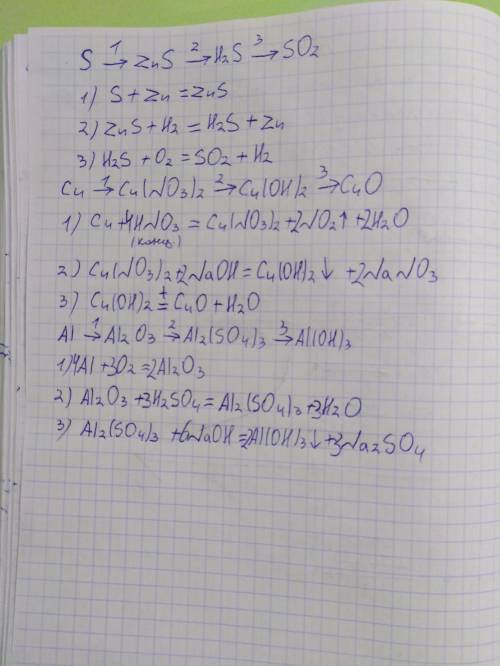 S 1→ ZnS 2→ H₂S 3→ SO₂
1) S + Zn = ZnS
2) ZnS + H₂ = H₂S + Zn
3) H₂S + O₂ = SO₂ + H₂
Cu 1→ Cu(NO₃)₂ 2→ Cu(OH)₂ 3→ CuO
1) Cu + 4HNO₃ = Cu(NO₃)₂ + 2NO₂↑ + 2H₂O
(конц.)
2) Cu(NO₃)₂ + 2NaOH = Cu(OH)₂↓ + 2NaNO₃
3) Cu(OH)₂ t= CuO + H₂O
Al 1→ Al₂O₃ 2→ Al₂(SO₄)₃ 3→ Al(OH)₃
1) 4Al + 3O₂ = 2Al₂O₃
2) Al₂O₃ + 3H₂SO₄ = Al₂(SO₄)₃ + 3H₂O
3) Al₂(SO₄)₃ + 6NaOH = 2Al(OH)₃↓ + 3Na₂SO₄